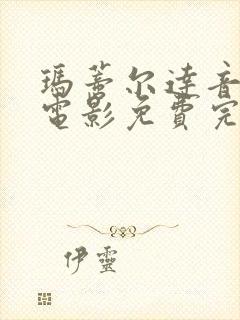 瑪蒂尔達音
電影免費完
伊靈